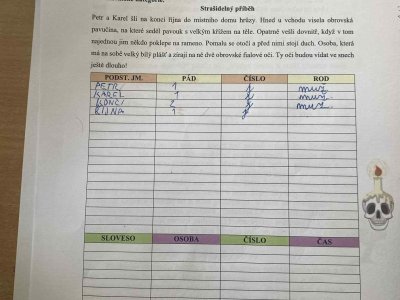 Strašidelný příběh
Petr a Karel šli na konci října do místního domu hrůzy. Hned u vchodu visela obrovská
pavučina, na které seděl pavouk s velkým křížem na těle. Opatrně vešli dovnitř, když v tom
najednou jim někdo poklepe na rameno. Pomalu se otočí a před nimi stojí duch. Osoba, která
má na sobě velký bílý plášť a zírají na ně dvě obrovské fialové oči. Ty oči budou vídat ve snech
ještě dlouho!
PODST. JM. PÁD ČÍSLO ROD
PETR 1 j muž
KAREL 1 j muž
KONCI 2 j muž
ŘÍJNA 1 j
SLOVESO OSOBA ČÍSLO ČAS